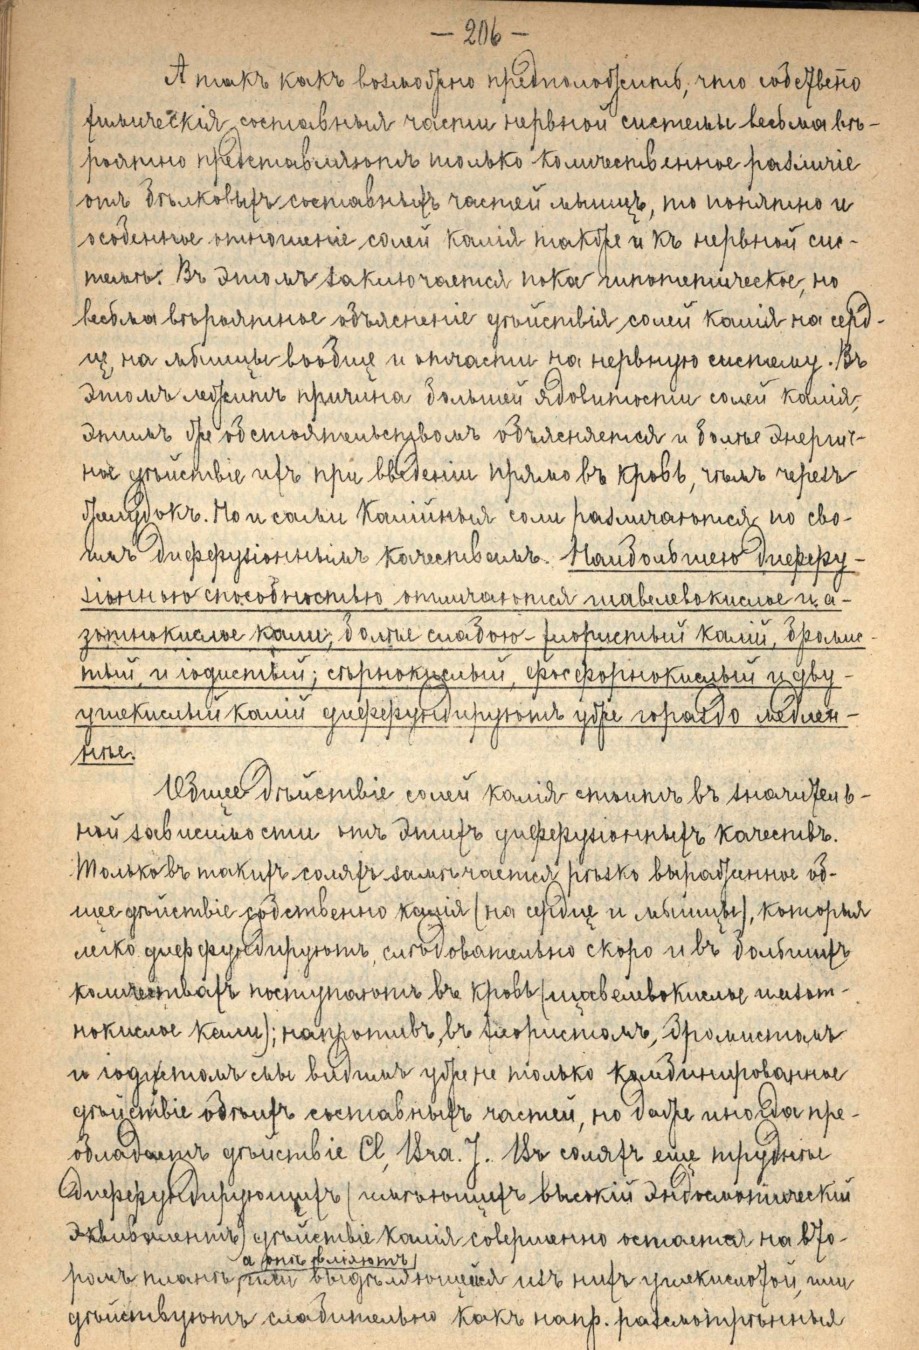 — 206 —
А такъ какъ возможно предположить, что собственно
химическія составныя части нервной системы весьма вѣ-
роятно представляютъ только количественное различіе
отъ бѣлковыхъ составныхъ частей мышцъ, то понятно и
особенное отношеніе солей калія также и къ нервной сис-
темѣ. Въ этомъ заключается пока гипотетическое, но
весьма вѣроятное объясненіе дѣйствія солей калія на серд-
це, на мышцы вообще и отчасти на нервную систему. Въ
этомъ лежитъ причина большей ядовитости солей калія,
этимъ же обстоятельствомъ объясняется и болѣе энергич-
ное дѣйствіе ихъ при введеніи прямо въ кровь, чѣмъ черезъ
желудокъ. Но и сами калійныя соли различаются по сво-
имъ диффузіоннымъ качествамъ. Наибольшею диффу-
зіонною способностью отличаются щавелевокислое и а-
зотнокислое кали; болѣе слабою – хлористый калій, бромис-
тый и іодистый; сѣрнокислый, фосфорнокислый и дву-
углекислый калій диффундируютъ уже гораздо медлен-
нѣе.
Общее дѣйствіе солей калія стоитъ въ значитель-
ной зависимости отъ этихъ диффузіонныхъ качествъ.
Только въ такихъ соляхъ замѣчается рѣзко выраженное об-
щее дѣйствіе собственно калія (на сердце и мышцы), которыя
легко диффундируютъ, слѣдовательно скоро и въ большихъ
количествахъ поступаютъ въ кровь (щавелевокислое и азот-
нокислое кали); напротивъ, въ хлористомъ, бромистомъ
и іодистомъ мы видимъ уже не только комбинированное
дѣйствіе обѣихъ составныхъ частей, но даже иногда пре-
обладаетъ дѣйствіе Cl, Br. J. Въ соляхъ еще труднѣе
диффундирующихъ (имѣющихъ высокій эндосмотическій
эквивалентъ) дѣйствіе калія совершенно остается на вто-
ромъ планѣ, а онѣ вліяютъ или выдѣляющейся изъ нихъ углекислотой, или
дѣйствуютъ слабительно какъ напр. разсмотрѣнныя